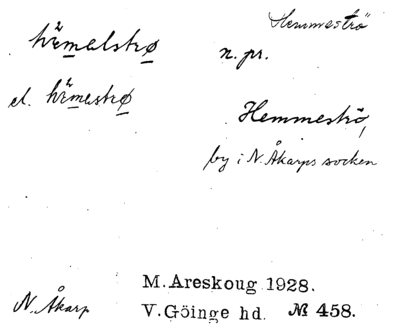 Hemmeströ
hæ̈malstrø n. pr.
el. hæ̈mastrø
Hemmeströ,
by i N. Åkarps socken
M. Areskoug 1928.
N. Åkarp
V. Göinge hd. № 458.